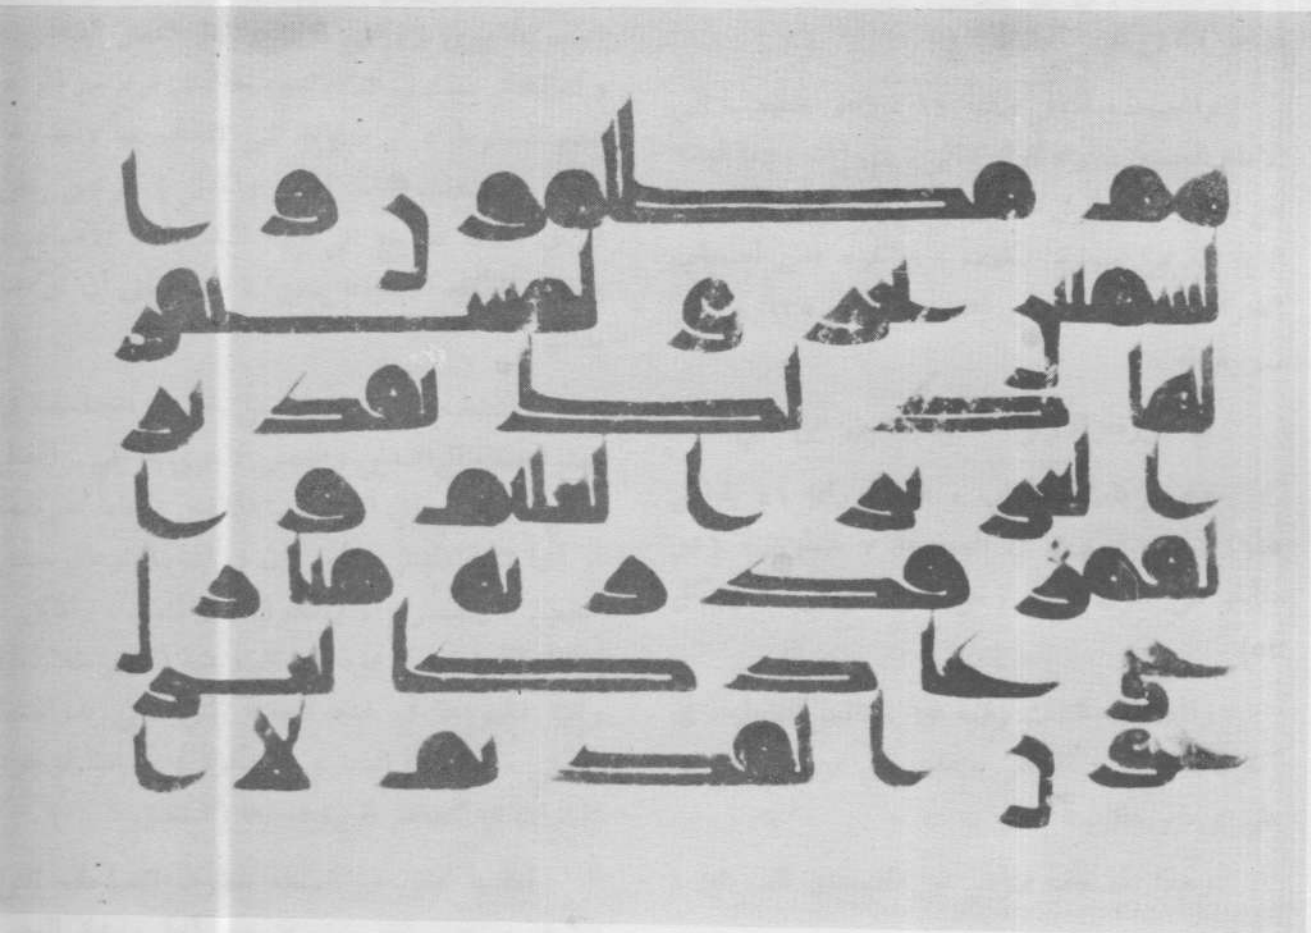 هم مظلمون وا
لشمس تجرى لمستقر
لها ذلك تقدير
العزيز العليم وا
لقمر قدرنه منازل
حتى عاد كالعر
جون القديم لا ا